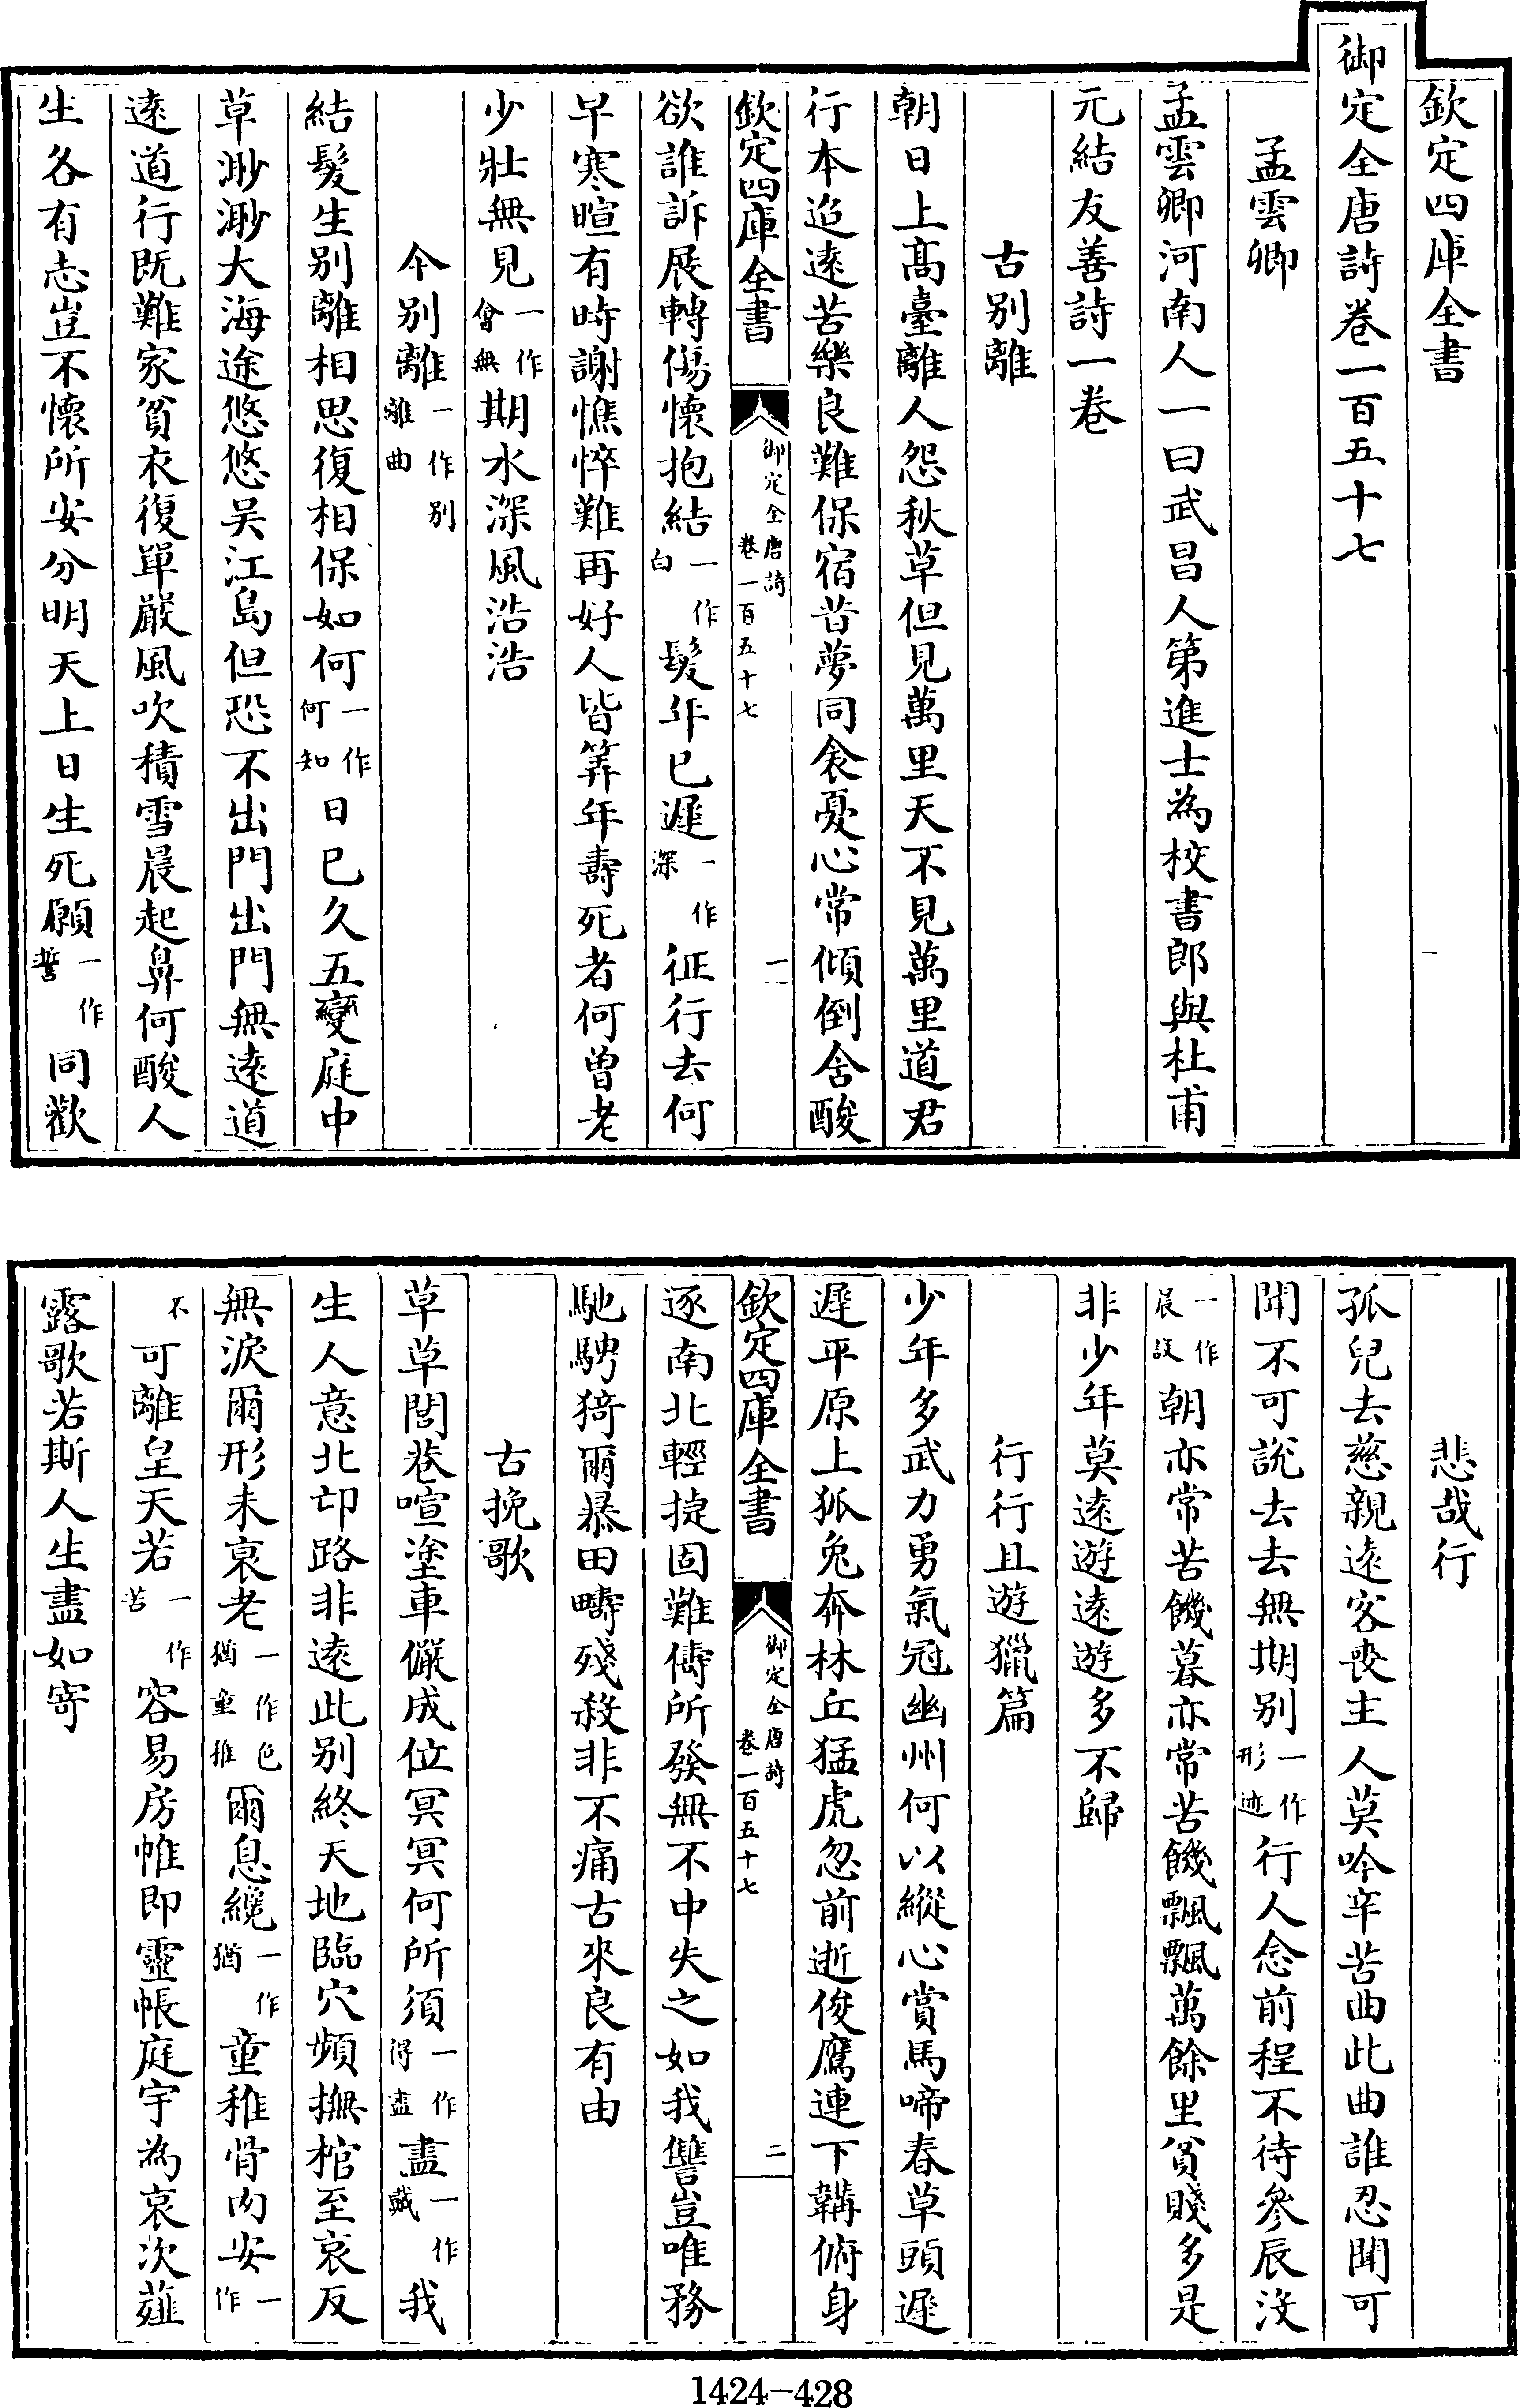 欽定四庫全書
一
御定全唐詩卷一百五十七
孟雲卿
孟雲卿河南人一曰武昌人第進士為校書郎與杜甫
元結友善詩一卷
古别離
朝日上髙臺離人怨秋草但見萬里天不見萬里道君
行本迢逺苦樂良難保宿昔夢同衾憂心常傾倒含酸
欽定四庫全書
御定全唐詩
卷一百五十七
一
欲誰訴展轉傷懷抱結一作白髮年已遲一作深征行去何
早寒暄有時謝憔悴難再好人皆筭年壽死者何曽老
少壯無見一作會無期水深風浩浩
今别離一作别離曲
結髮生别離相思復相保如何一作何知日已久五變庭中
草渺渺大海途悠悠吴江島但恐不出門出門無逺道
逺道行既難家貧衣復單嚴風吹積雪晨起鼻何酸人
生各有志豈不懷所安分明天上日生死願一作誓同歡
悲哉行
孤兒去慈親逺客喪主人莫吟辛苦曲此曲誰忍聞可
聞不可説去去無期别一作形迹行人念前程不待參辰沒
一作晨設朝亦常苦饑暮亦常苦饑飄飄萬餘里貧賤多是
非少年莫逺遊逺遊多不歸
行行且遊獵篇
少年多武力勇氣冠幽州何以縱心賞馬啼春草頭遲
遲平原上狐兔奔林丘猛虎忽前逝俊鷹連下韝俯身
欽定四庫全書
御定全唐詩
卷一百五十七
二
逐南北輕捷固難儔所發無不中失之如我讐豈唯務
馳騁猗爾暴田疇殘殺非不痛古來良有由
古挽歌
草草閭巷喧塗車儼成位冥冥何所須一作得盡盡一作戲我
生人意北邙路非逺此别終天地臨穴頻撫棺至哀反
無淚爾形未衰老一作色猶童稚爾息纔一作猶童稚骨肉安一作
不可離皇天若一作苦容易房帷即靈帳庭宇為哀次薤
露歌若斯人生盡如寄
1424-428